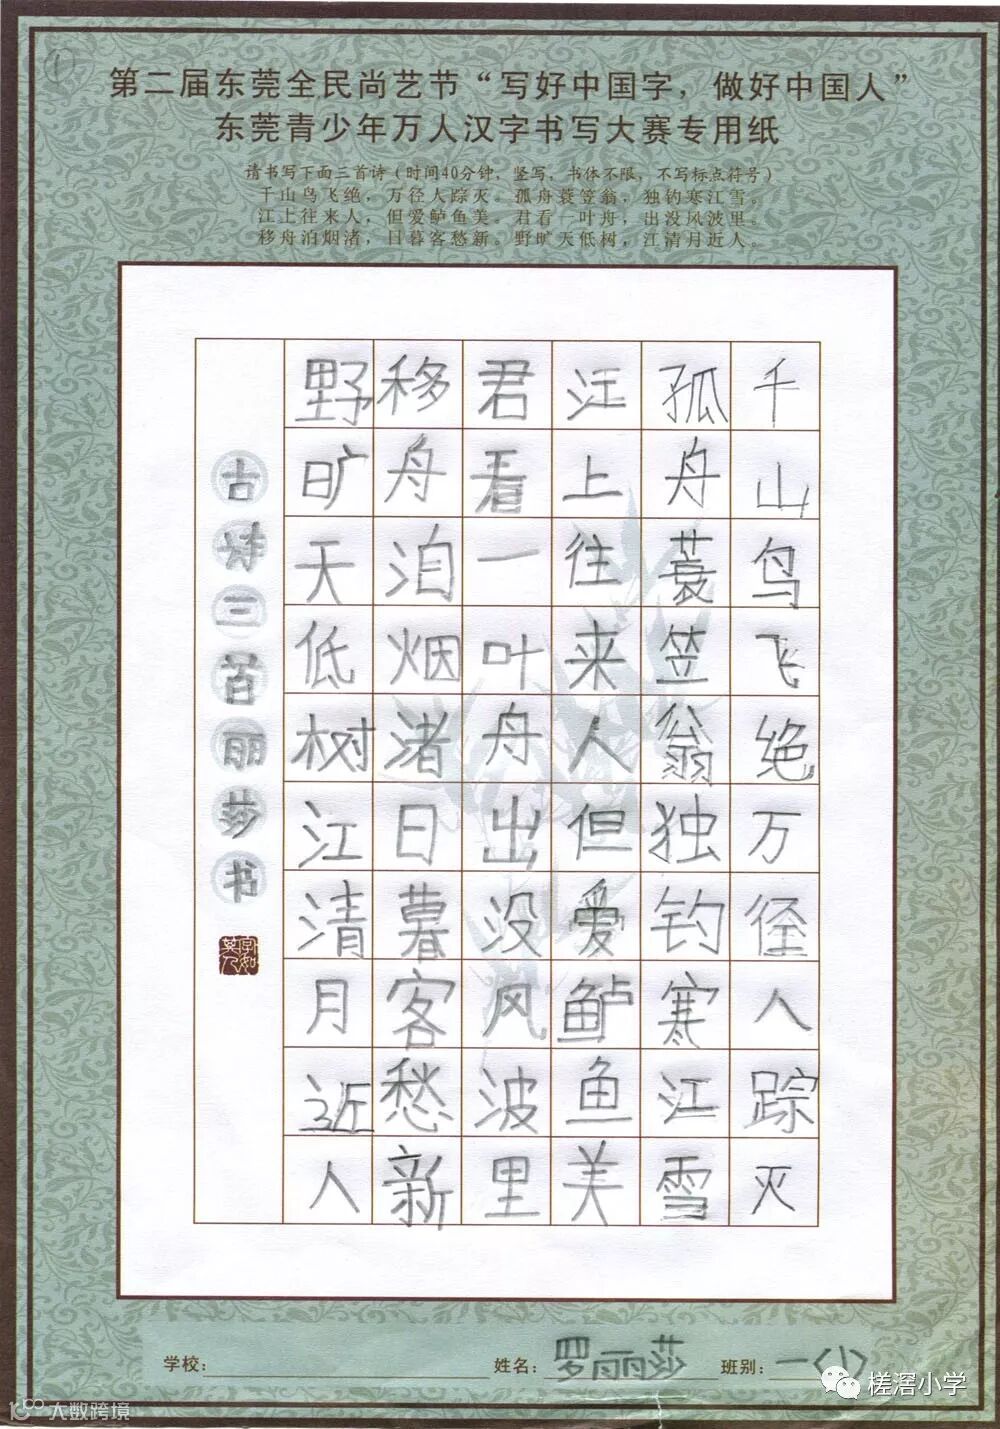 1
第二届东莞全民尚艺节“写好中国字，做好中国人”
东莞青少年万人汉字书写大赛专用纸
请书写下面三首诗（时间40分钟，竖写，书体不限，不写标点符号）
千山鸟飞绝，万径人踪灭。孤舟蓑笠翁，独钓寒江雪。
江上往来人，但爱鲈鱼美。君看一叶舟，出没风波里。
移舟泊烟渚，日暮客愁新。野旷天低树，江清月近人。
千山鸟飞绝万径人踪灭
孤舟蓑笠翁独钓寒江雪
江上往来人但爱鲈鱼美
君看一叶舟出没风波里
移舟泊烟渚日暮客愁新
野旷天低树江清月近人
古诗三首丽莎书
学校： 姓名：罗丽莎 班别：一(1)
槎滘小学
大数跨境